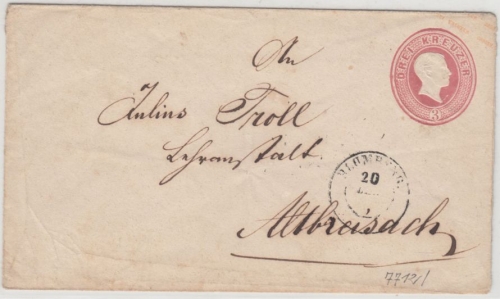 An
DREI KREUZER
3
Julius Troll
Lehranstalt.
BLUMBERG.
20
Altbreisach
7712/